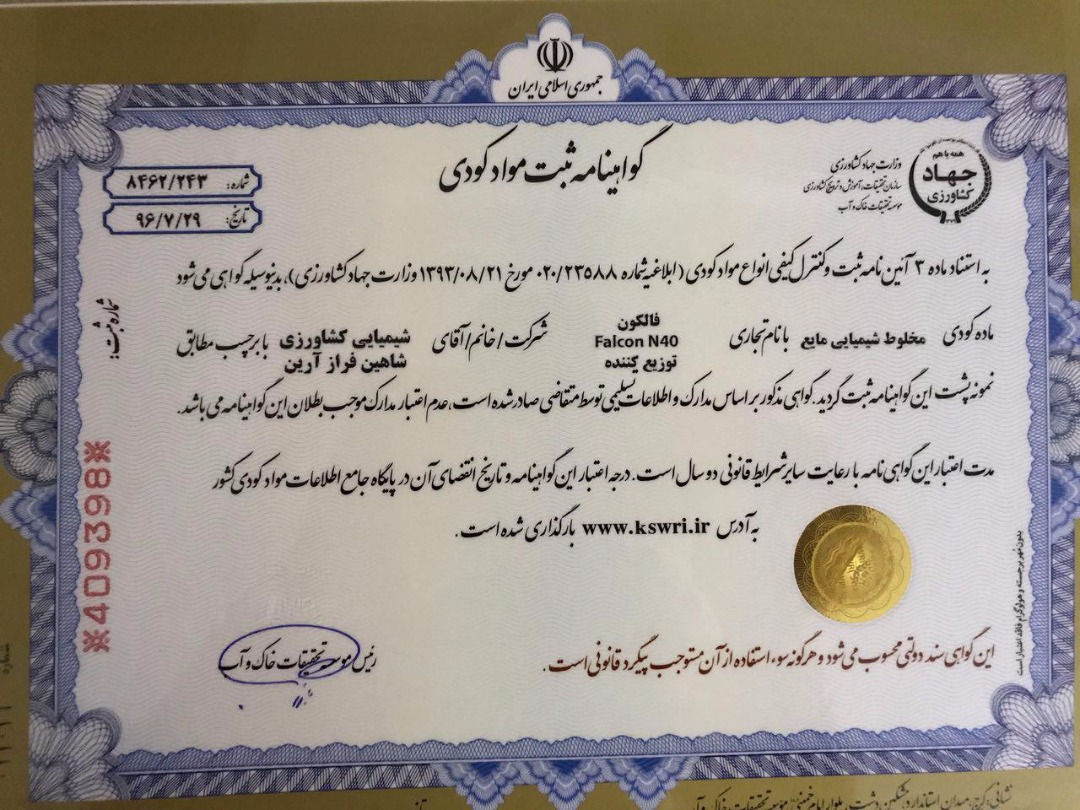 جمهوری اسلامی ایران
گواهینامه ثبت مواد کودی
همه با هم
جهاد
کشاورزی
وزارت جهاد کشاورزی
سازمان تحقیقات، آموزش و ترویج کشاورزی
موسسه تحقیقات خاک و آب
شماره: ۸۴۶۲/۲۴۳
تاریخ: ۹۶/۷/۲۹
به استناد ماده ۳ آئین نامه ثبت و کنترل کیفی انواع مواد کودی (ابلاغیه شماره ۰۲۰/۲۳۵۸۸ مورخ ۱۳۹۳/۰۸/۲۱ وزارت جهاد کشاورزی)، بدینوسیله گواهی می شود
ماده کودی مخلوط شیمیایی مایع با نام تجاری فالکون Falcon N40 توزیع کننده شرکت/خانم/آقای شیمیایی کشاورزی شاهین فراز آرین با برچسب مطابق
نمونه پشت این گواهینامه ثبت گردید. گواهی مذکور بر اساس مدارک و اطلاعات تسلیمی توسط متقاضی صادر شده است، عدم اعتبار مدارک موجب بطلان این گواهینامه می باشد.
مدت اعتبار این گواهی نامه با رعایت سایر شرایط قانونی دو سال است. درجه اعتبار این گواهینامه و تاریخ انقضای آن در پایگاه جامع اطلاعات مواد کودی کشور
به آدرس www.kswri.ir بارگذاری شده است.
این گواهی سند دولتی محسوب می شود و هرگونه سوء استفاده از آن مستوجب پیگرد قانونی است.
رئیس موسسه تحقیقات خاک و آب
شماره ثبت:
※409398※
بدون مهر برجسته و هولوگرام فاقد اعتبار است